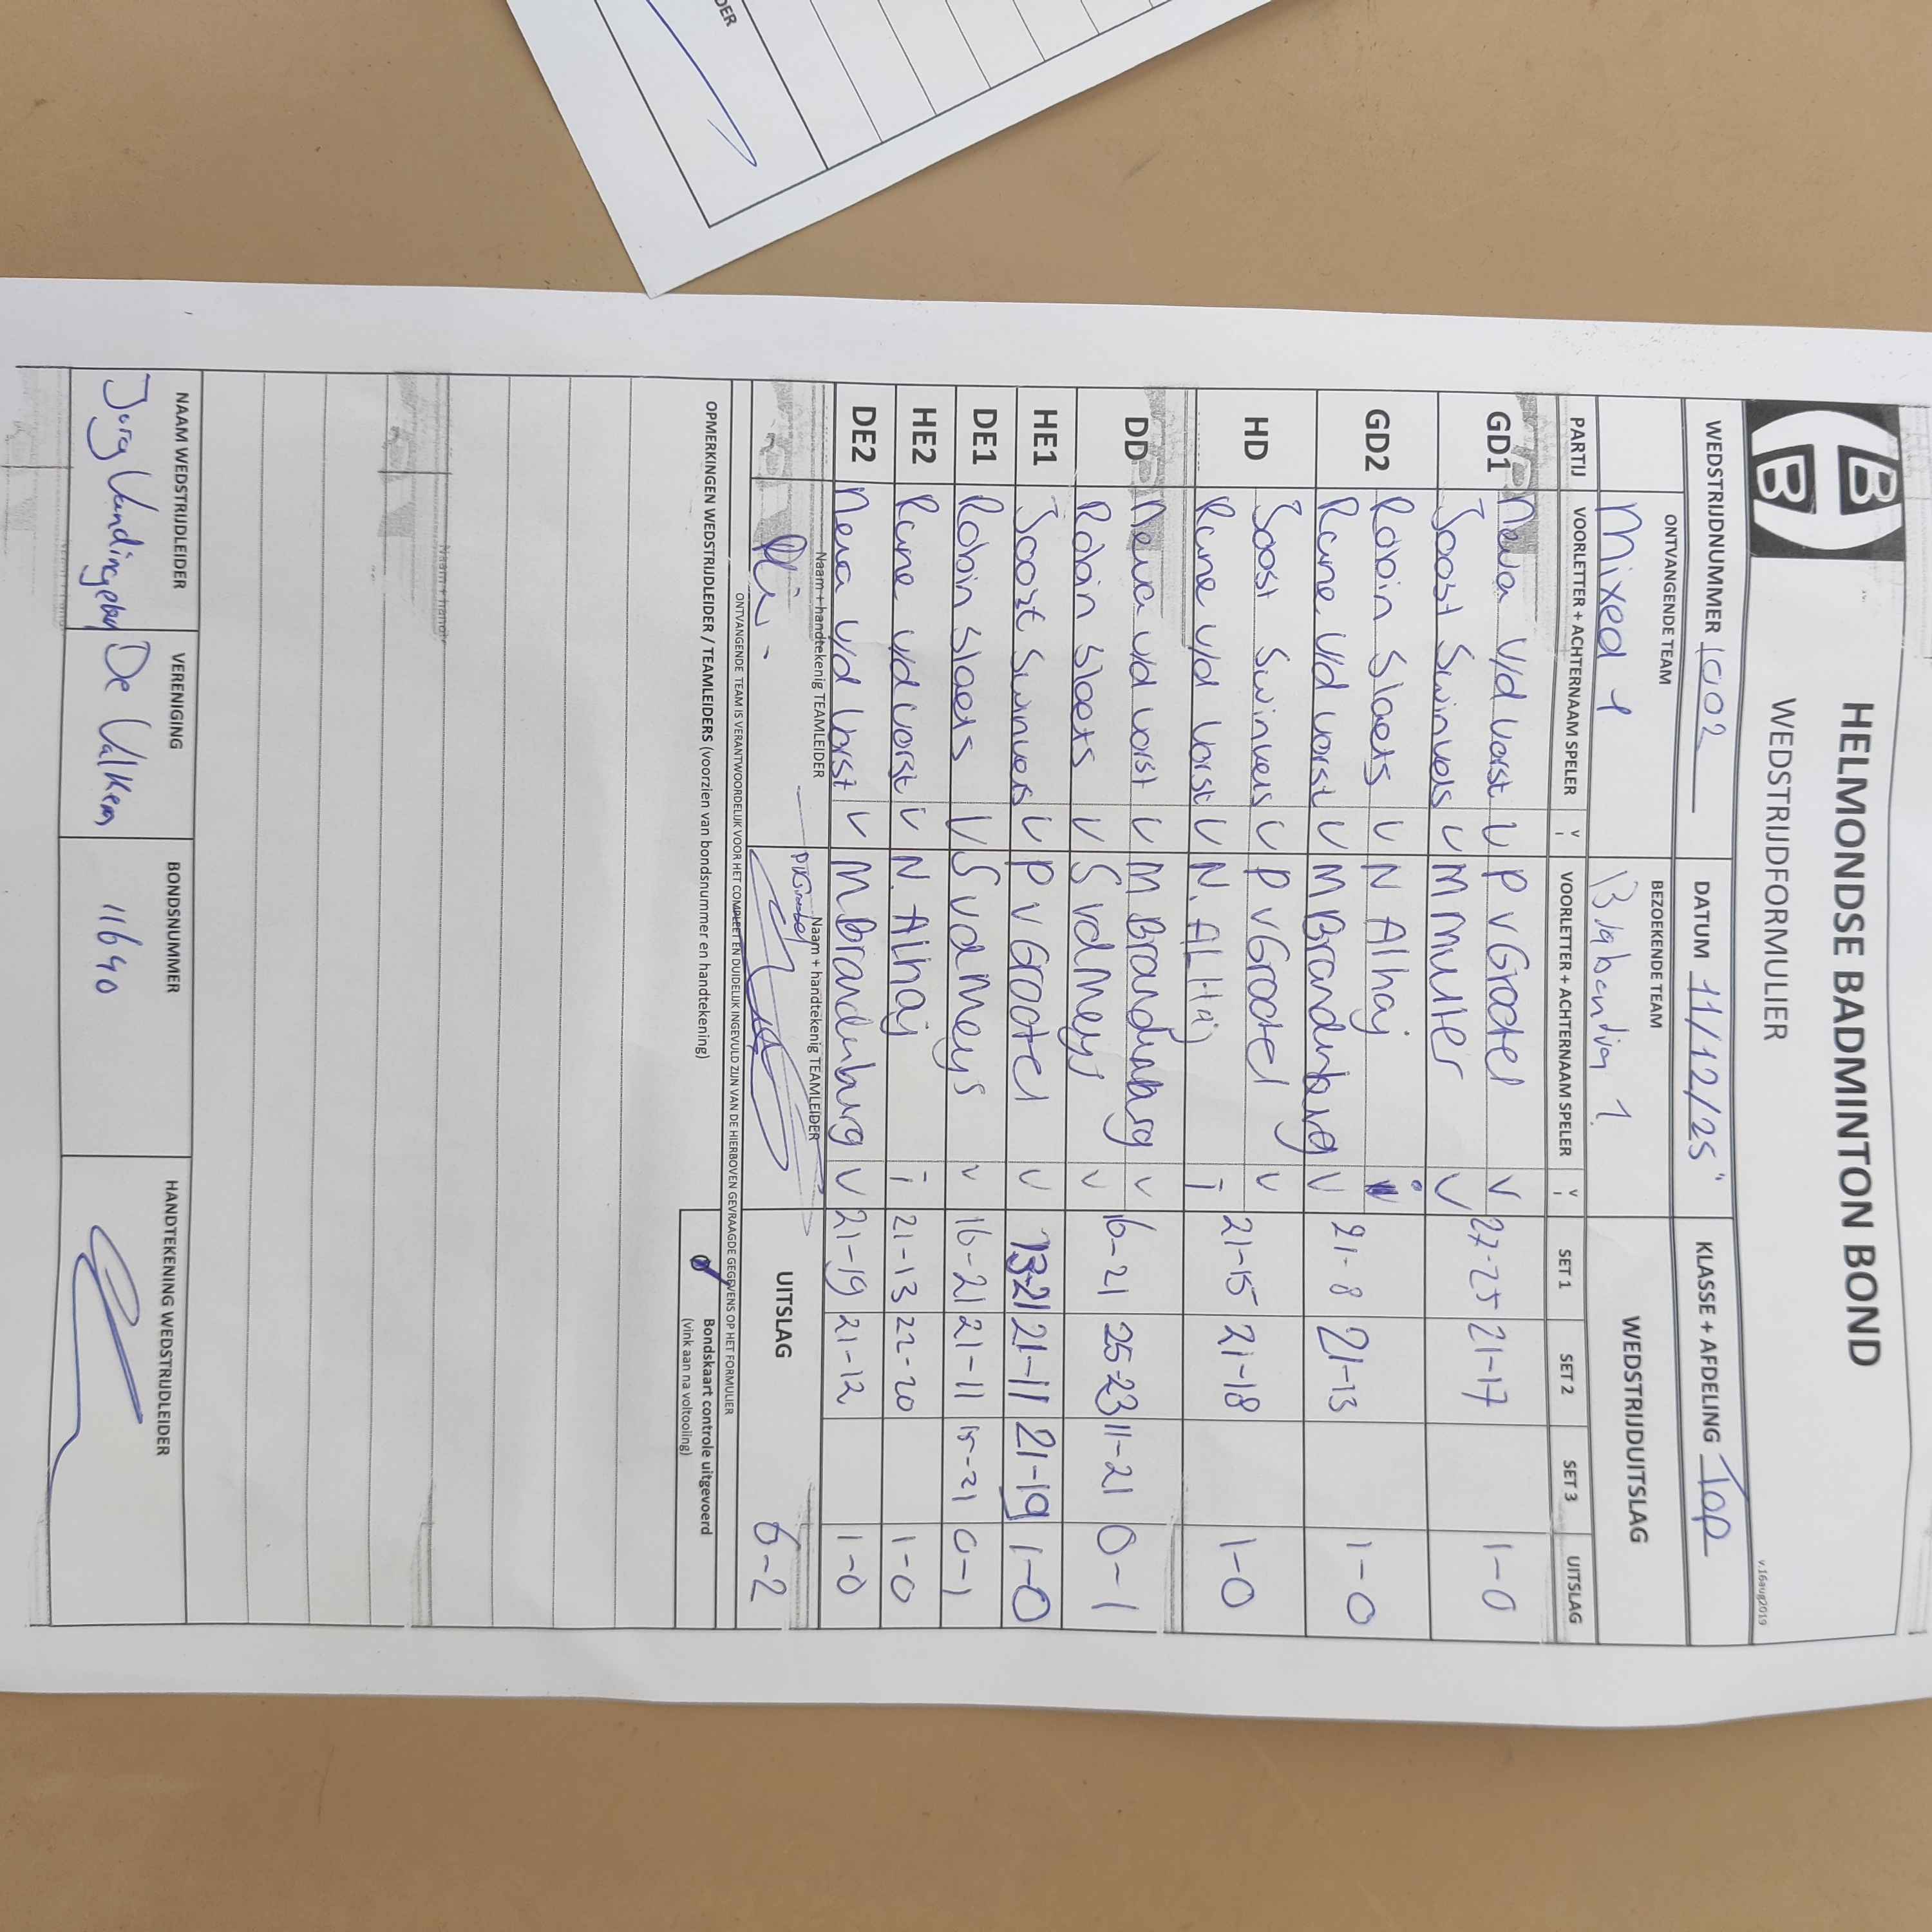 HELMONDSE BADMINTON BOND
WEDSTRIJDFORMULIER
v.16aug2019
WEDSTRIJDNUMMER 1002 DATUM 11/12/25 KLASSE + AFDELING Top
ONTVANGENDE TEAM BEZOEKENDE TEAM WEDSTRIJDUITSLAG
Mixed 1 Brabantia 1
PARTIJ VOORLETTER + ACHTERNAAM SPELER V I VOORLETTER + ACHTERNAAM SPELER V I SET 1 SET 2 SET 3 UITSLAG
GD1 v/d Vorst V P v Grootel V 27-25 21-17 1-0
Joost Swinvels V M Muller V
GD2 Robin Slaets V N Alhaj i 21-8 21-13 1-0
Rune v/d Vorst V M Brandenburg V
HD Joost Swinvels V P v Grootel V 21-15 21-18 1-0
Rune v/d Vorst V N. ALHaj i
DD v/d Vorst V M Brandenburg V 16-21 25-23 11-21 0-1
Robin Slaets V S vd Meys V
HE1 Joost Swinvels V P v Grootel V 13-21 21-11 21-19 1-0
DE1 Robin Slaets V S vd Meys V 16-21 21-11 15-21 0-1
HE2 Rune v/d Vorst V N. Alhaj i 21-13 22-20 1-0
DE2 v/d Vorst V M Brandenburg V 21-19 21-12 1-0
Naam + handtekenig TEAMLEIDER Naam + handtekenig TEAMLEIDER UITSLAG 6-2
ONTVANGENDE TEAM IS VERANTWOORDELIJK VOOR HET COMPLEET EN DUIDELIJK INGEVULD ZIJN VAN DE HIERBOVEN GEVRAAGDE GEGEVENS OP HET FORMULIER
OPMERKINGEN WEDSTRIJDLEIDER / TEAMLEIDERS (voorzien van bondsnummer en handtekening)
Bondskaart controle uitgevoerd
(vink aan na voltooling)
NAAM WEDSTRIJDLEIDER VERENIGING BONDSNUMMER HANDTEKENING WEDSTRIJDLEIDER
De Valken 11690